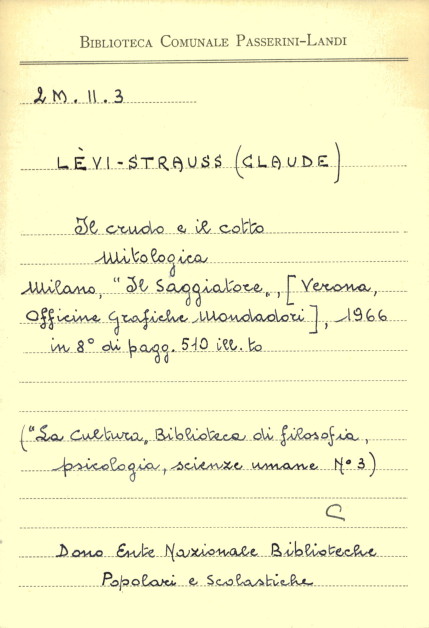 BIBLIOTECA COMUNALE PASSERINI-LANDI
2 M. II. 3
LÈVI-STRAUSS (CLAUDE)
Il crudo e il cotto
Mitologica
Milano, "Il Saggiatore", [Verona,
Officine Grafiche Mondadori], 1966
in 8° di pagg. 510 ill.to
("La Cultura" Biblioteca di filosofia,
psicologia, scienze umane N° 3)
C
Dono Ente Nazionale Biblioteche
Popolari e Scolastiche